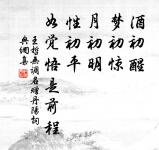 酒初醒
梦初惊
月初明
性初平
如觉悟是前程
王哲无调名赠丹阳词
典调喜